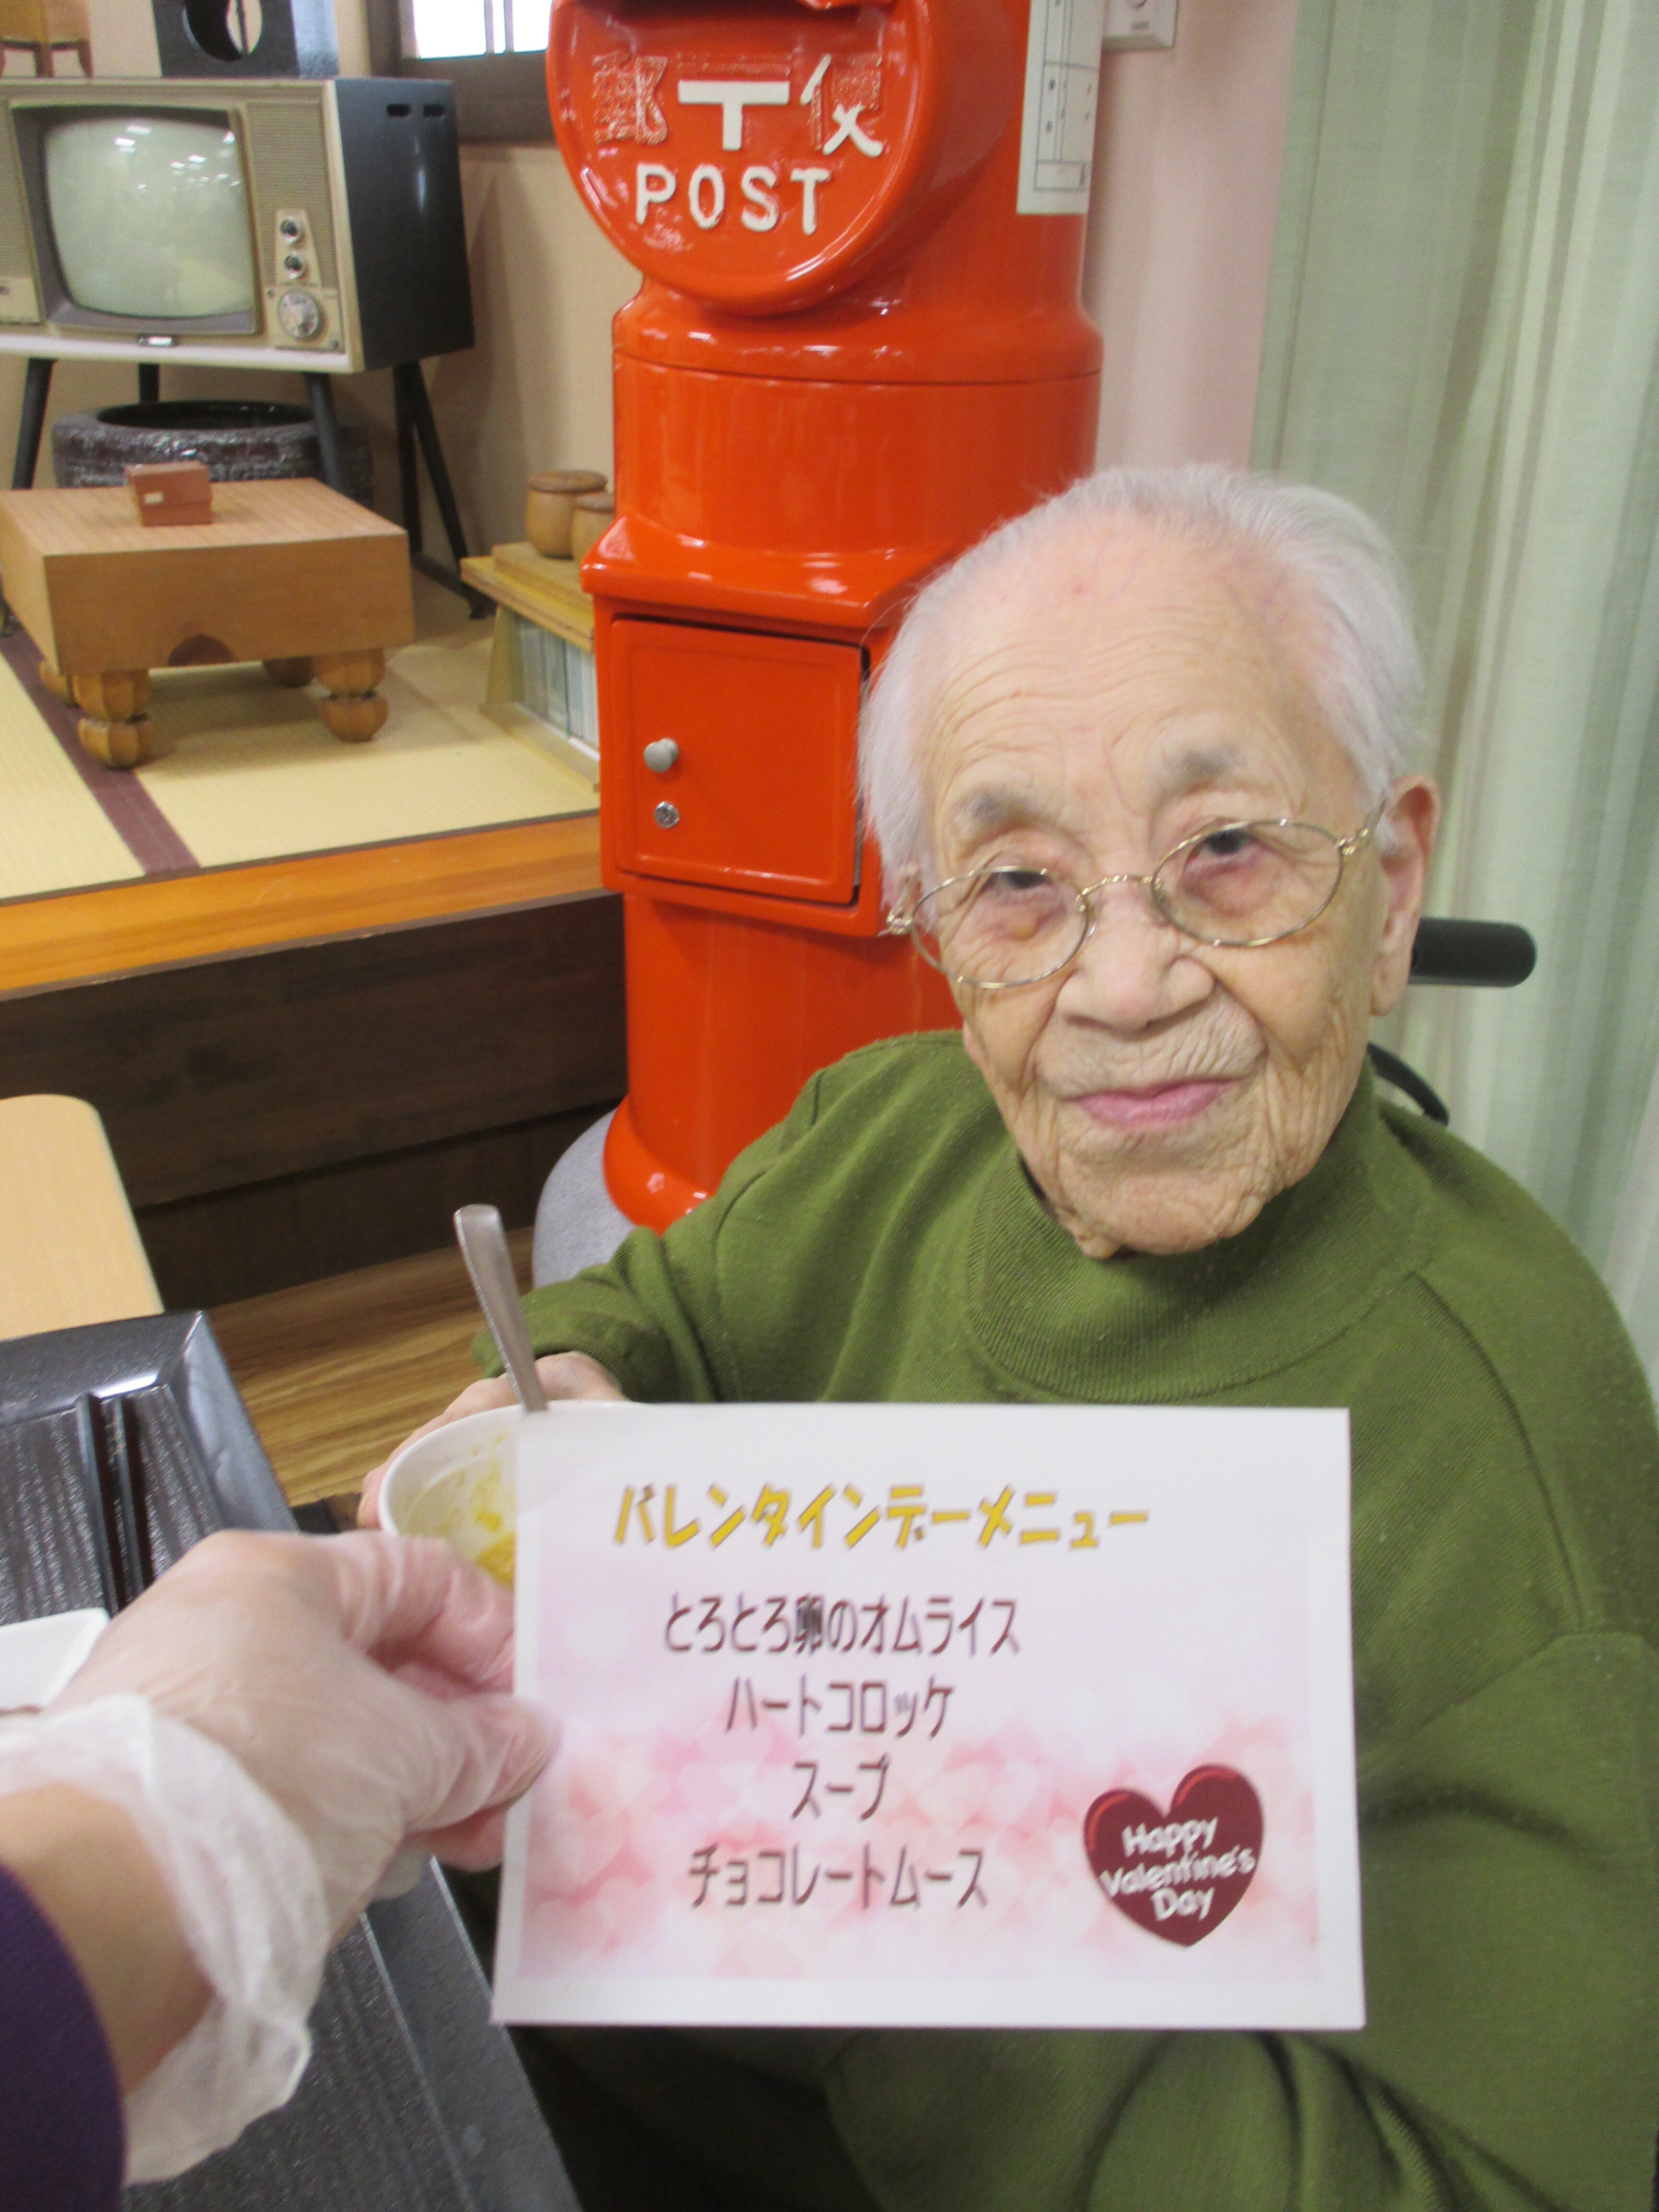 郵〒便
POST
バレンタインデーメニュー
とろとろ卵のオムライス
ハートコロッケ
スープ
チョコレートムース
Happy
Valentine's
Day